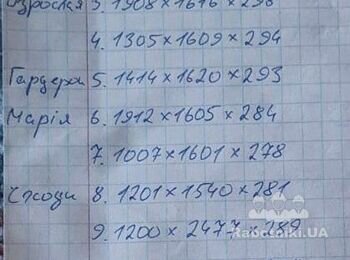 3. 1908 × 1616 × 298
4. 1305 × 1609 × 294
Гардера 5. 1414 × 1620 × 293
Марія 6. 1912 × 1605 × 284
7. 1007 × 1601 × 278
Сходи 8. 1201 × 1540 × 281
9. 1200 × 2477 × 289
Rabotniki.UA